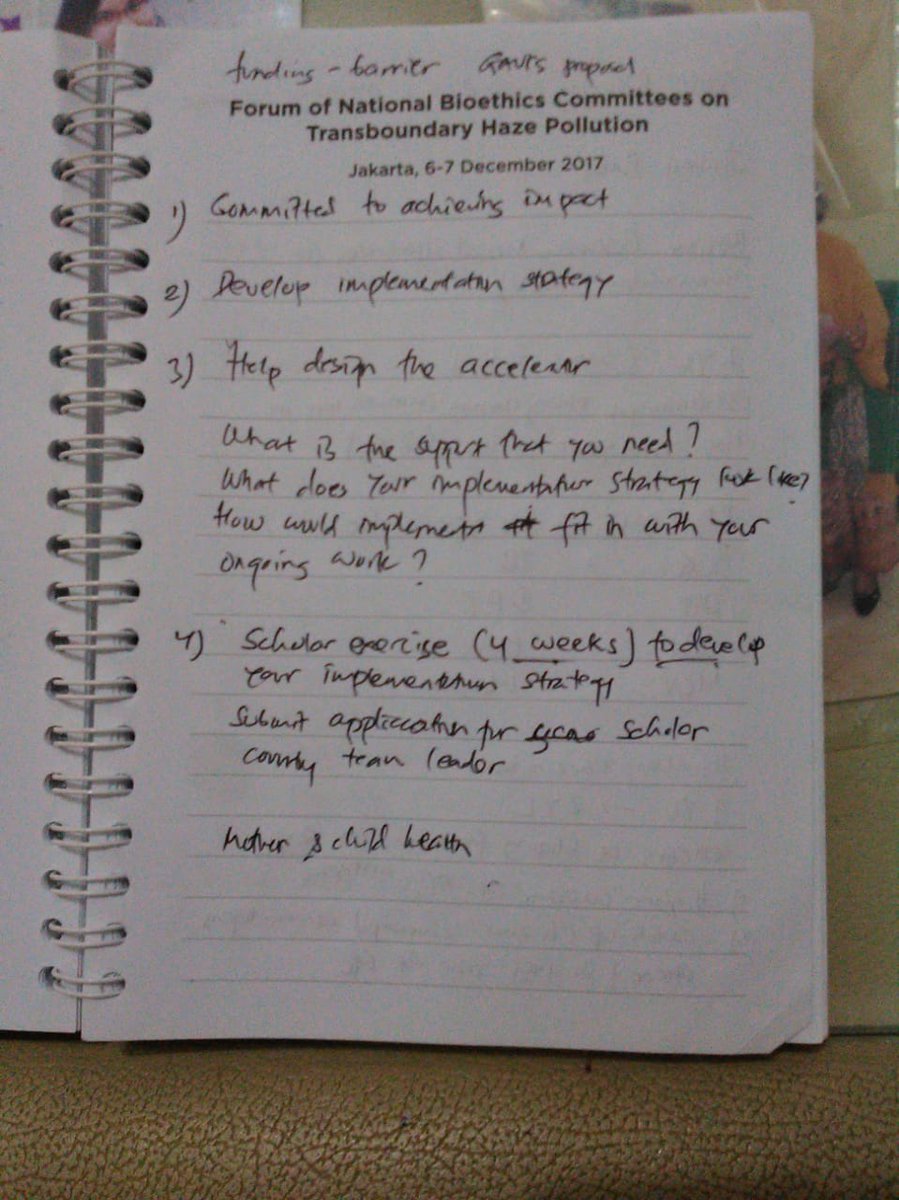 funding - barrier proposal
Forum of National Bioethics Committees on
Transboundary Haze Pollution
Jakarta, 6-7 December 2017
1) Committed to achieving impact
2) Develop implementation strategy
3) Help design the accelerator
What is the support that you need?
What does your implementation strategy look like?
How would implement fit in with your
ongoing work?
4) Scholar exercise (4 weeks) to develop
your implementation strategy
Submit application for scholar
team leader
Mother & child health